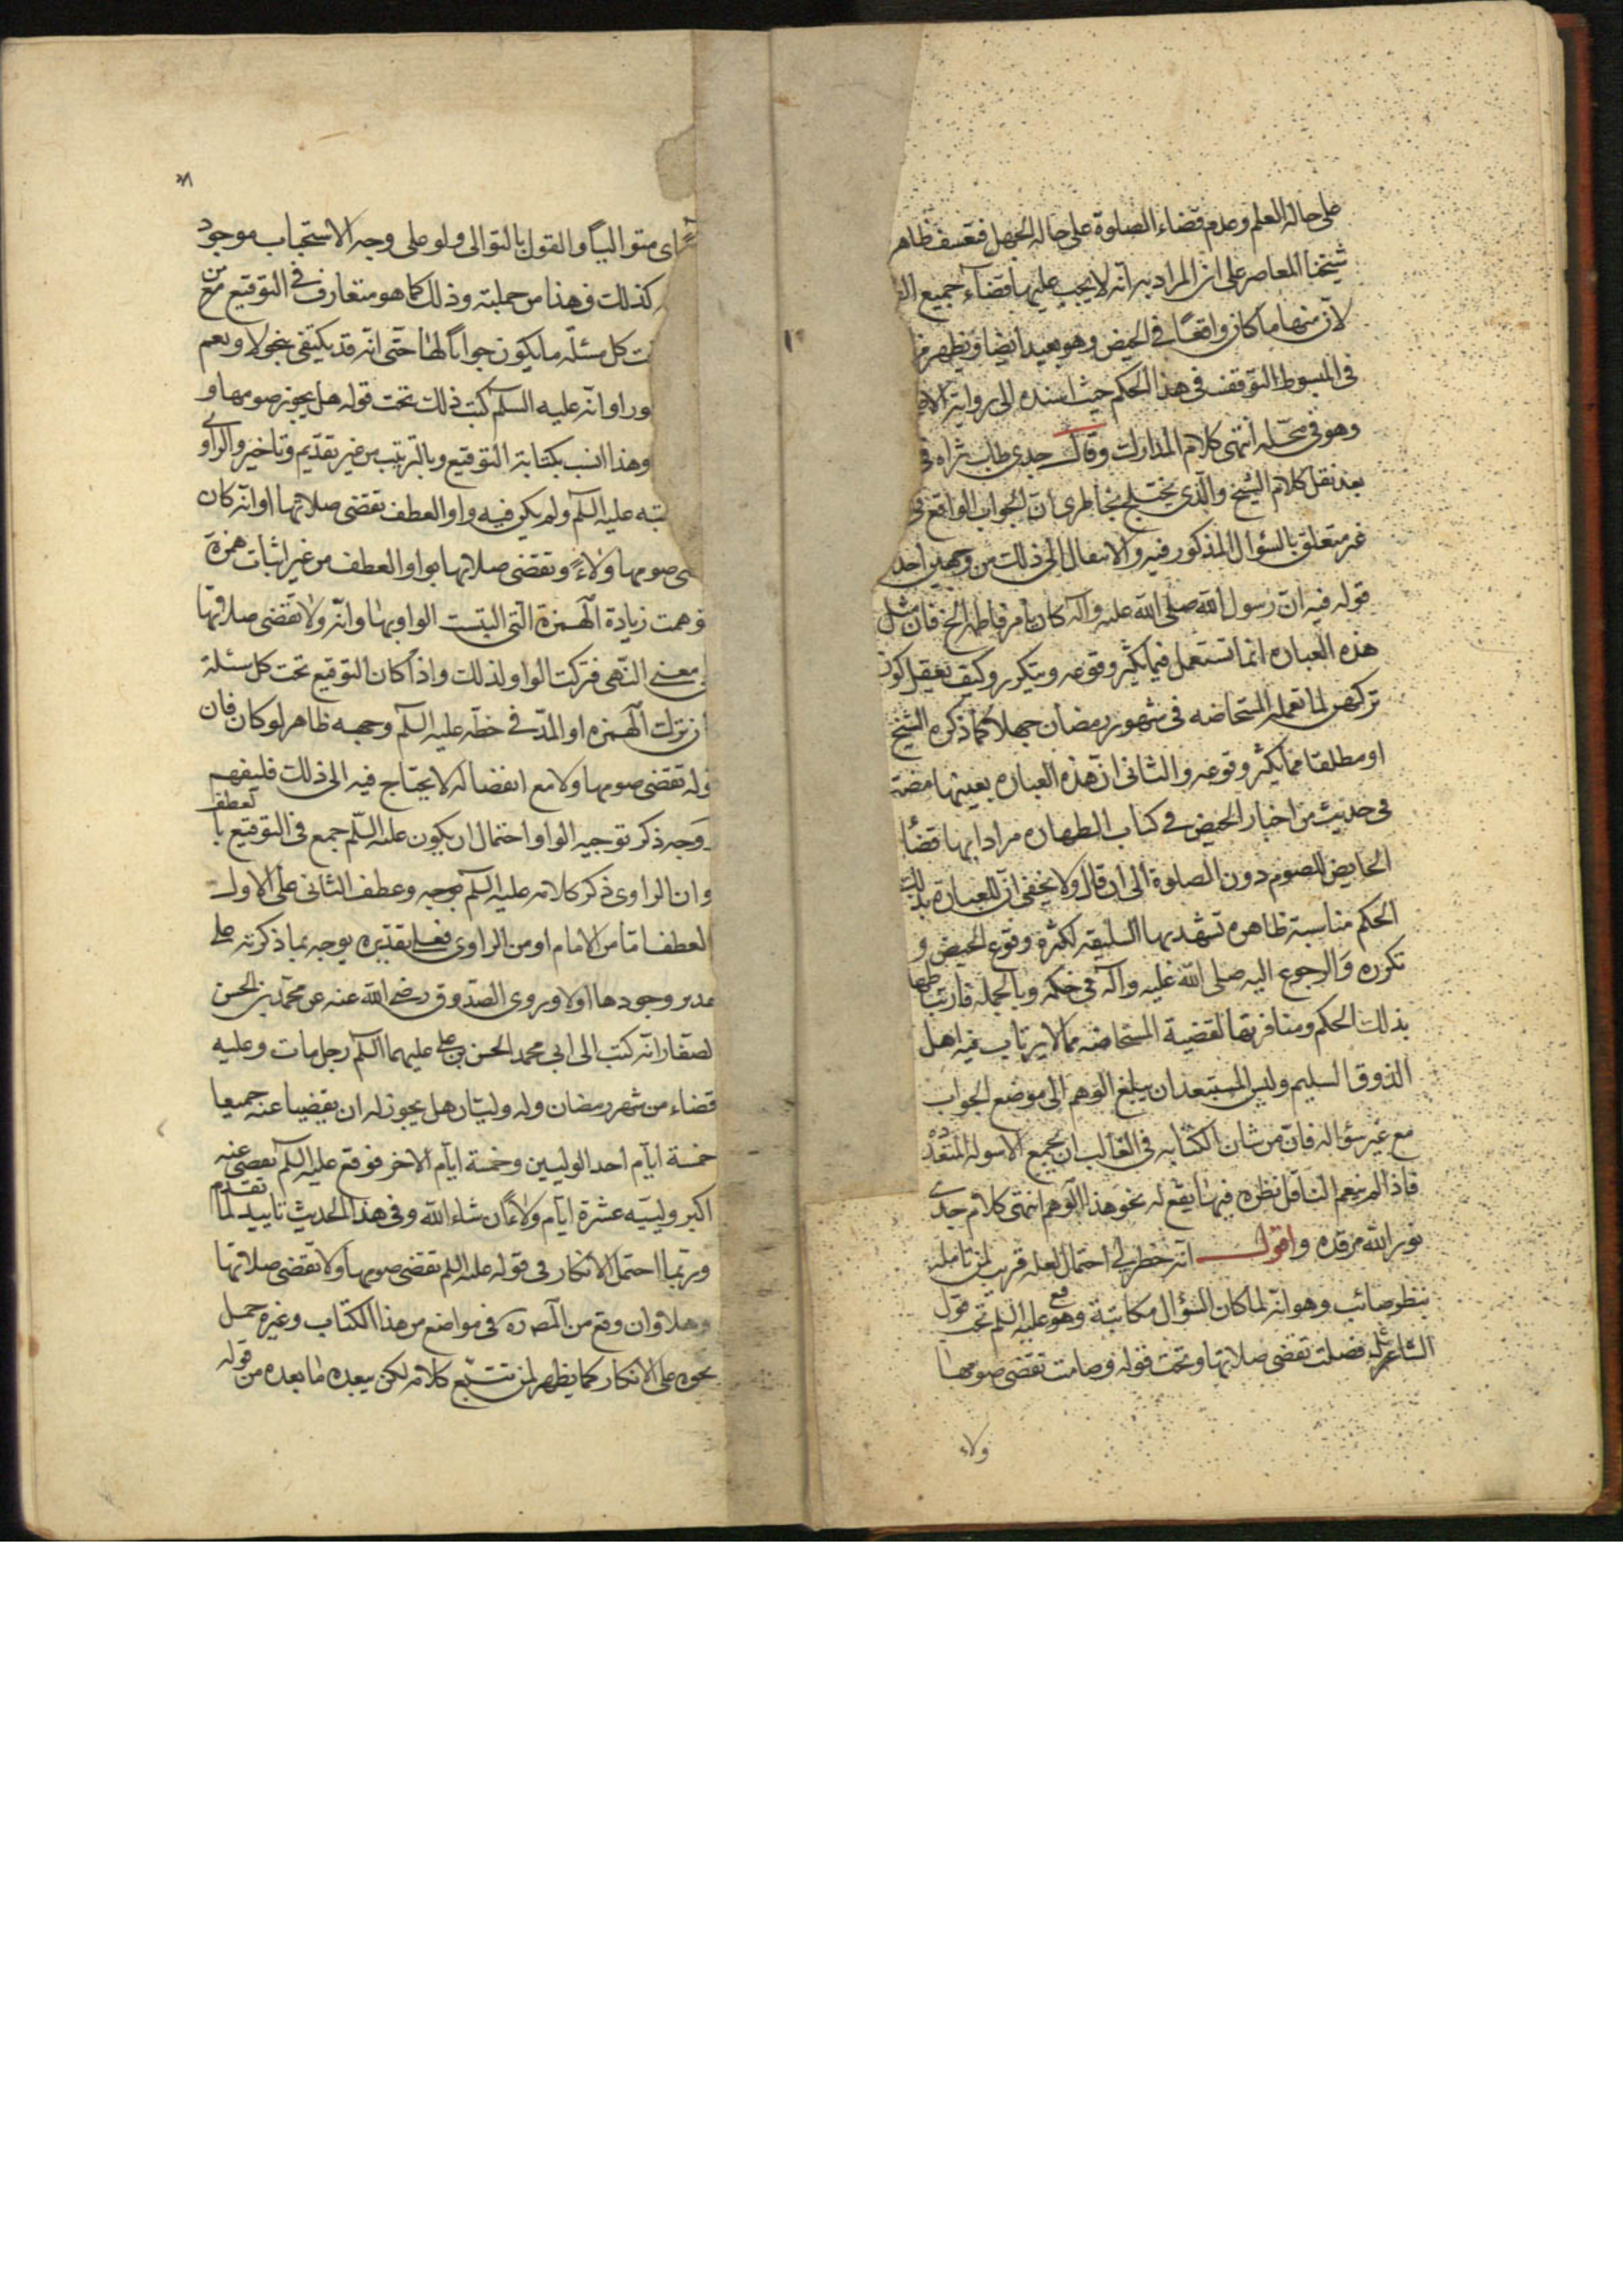 على حالة العلم وعدم قضاء الصلوة على حالة الجهل فتعسف ظاهر
شيخنا المعاصر على ان المراد به انه لا يجب عليها قضاء جميع
لان منها ما كان واقعًا في الحيض وهو بعيد ايضا ويظهر
في المبسوط التوقف في هذا الحكم حيث اسنده الى رواية
وهو في محله انتهى كلام المدارك وقال جدي طاب ثراه في
بعد نقل كلام الشيخ والذي يختلج بخاطري ان الجواب الواقع في
غير متعلق بالسؤال المذكور فيه والانتقال الى ذلك من وجهين احد
قوله فيه ان رسول الله صلى الله عليه وآله كان يامر فاطمة الخ فان مثل
هذه العبارة انما تستعمل فيما يكثر وقوعه ويتكرر وكيف يعقل كون
تركهن لما تعمله المستحاضه في شهور رمضان جهلا كما ذكره الشيخ
او مطلقا مما يكثر وقوعه والثاني ان هذه العباره بعينها مضت
في حديث من اخبار الحيض في كتاب الطهاره مرادا بها قضا
الحايض للصوم دون الصلوة الى ان قال ولا يخفى ان للعبارة بذلك
الحكم مناسبة ظاهره تشهد بها السليقه لكثرة وقوع الحيض و
تكرره والرجوع اليه صلى الله عليه وآله في حكمه وبالجمله فارتباطها
بذلك الحكم ومنافرتها لقضية المستحاضه مما لا يرتاب فيه اهل
الذوق السليم وليس المستبعد ان يبلغ الوهم الى موضع الجواب
مع غير سؤاله فان من شان الكتابه في الغالب ان يجمع الاسوله المتعدده
فاذا لم ينعم الناقل نظره فيها يقع له نحو هذا الوهم انتهى كلام جدي
نور الله مرقده واقول انه خطر لي احتمال لعله قريب لمن تامله
بنظر صائب وهو انه لما كان السؤال مكاتبة وقع عليه السلم تحت قول
السائل فصلت تقضى صلاتها وتحت قوله وصامت تقضى صومها
ولاء
اى متواليًا والقول بالتوالى ولو على وجه الاستحباب موجود
كذلك فهذا من جملته وذلك كما هو متعارف في التوقيع من
كل مسئله ما يكون جوابًا لها حتى انه قد يكتفى بنحو لا ونعم
وراو انه عليه السلم كتب ذلك تحت قوله هل يجوز صومها و
وهذا انسب بكتابة التوقيع وبالترتيب من غير تقديم وتاخير والراوى
عليه السلم ولم يكن فيه واو العطف تقضى صلاتها او انه كان
صومها ولاءً وتقضى صلاتها بواو العطف من غير اثبات همزة
فوهمت زيادة الهمزة التى التبست الواو بها وانه ولا تقضى صلاتها
معنى النهى فتركت الواو لذلك واذا كان التوقيع تحت كل مسئلة
ترك الهمزه او المد في خطه عليه السلم وجهه ظاهر لو كان فان
قوله تقضى صومها ولاء مع انفصاله لا يحتاج فيه الى ذلك فليفهم
وجه ذكر توجيه الواو احتمال ان يكون عليه السلم جمع في التوقيع بالعطف
وان الراوى ذكر كلامه عليه السلم بوجه وعطف الثانى على الاول
العطف اما من الامام او من الراوى فعلى تقديره يوجه بما ذكرته على
وجودها اولا وروى الصدوق رضى الله عنه عن محمد بن الحسن
لصفار انه كتب الى ابى محمد الحسن بن على عليهما السلم رجل مات وعليه
قضاء من شهر رمضان وله وليّان هل يجوز له ان يقضيا عنه جميعا
خمسة ايام احد الوليين وخمسة ايام الاخر فوقع عليه السلم يقضى عنه
اكبر ولييه عشرة ايام ولاءً ان شاء الله وفى هذا الحديث تاييد لما تقدم
وربما احتمل الانكار فى قوله عليه السلم تقضى صومها ولا تقضى صلاتها
وان وقع من فى مواضع من هذا الكتاب وغيره حمل
نحوه على الانكار كما يظهر لمن تتبع كلامه لكن يبعده ما بعده من قوله